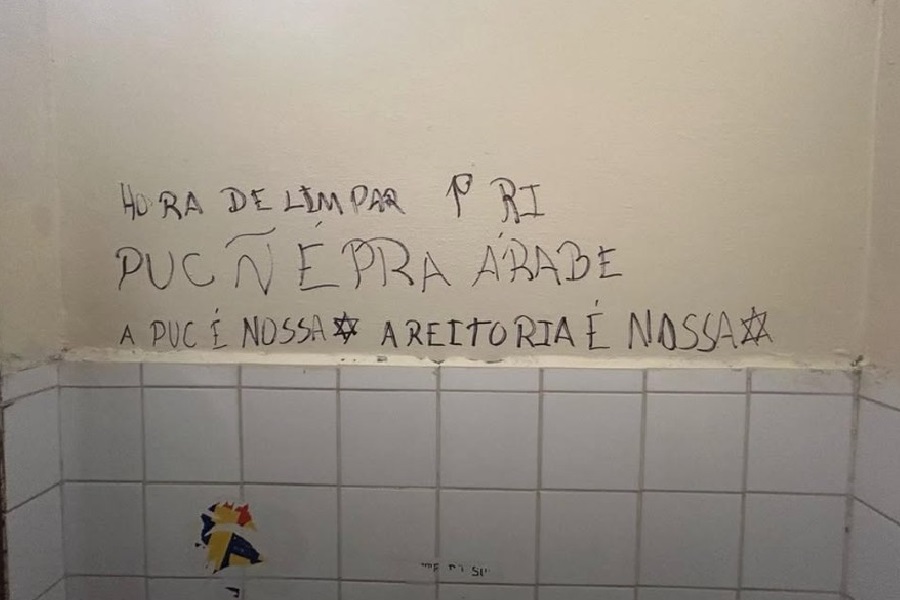 HORA DE LIMPAR 1º RI
PUC Ñ É PRA ÁRABE
A PUC É NOSSA✡ A REITORIA É NOSSA✡